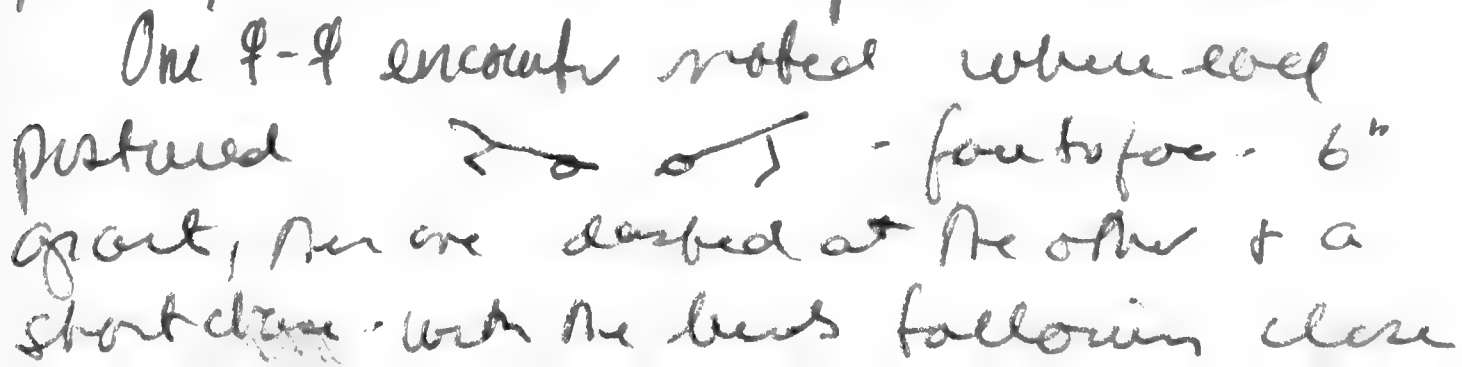 One ♀-♀ encounter noted where each
postured - face to face - 6"
apart, then one dashed at the other & a
short chase - with the birds following close